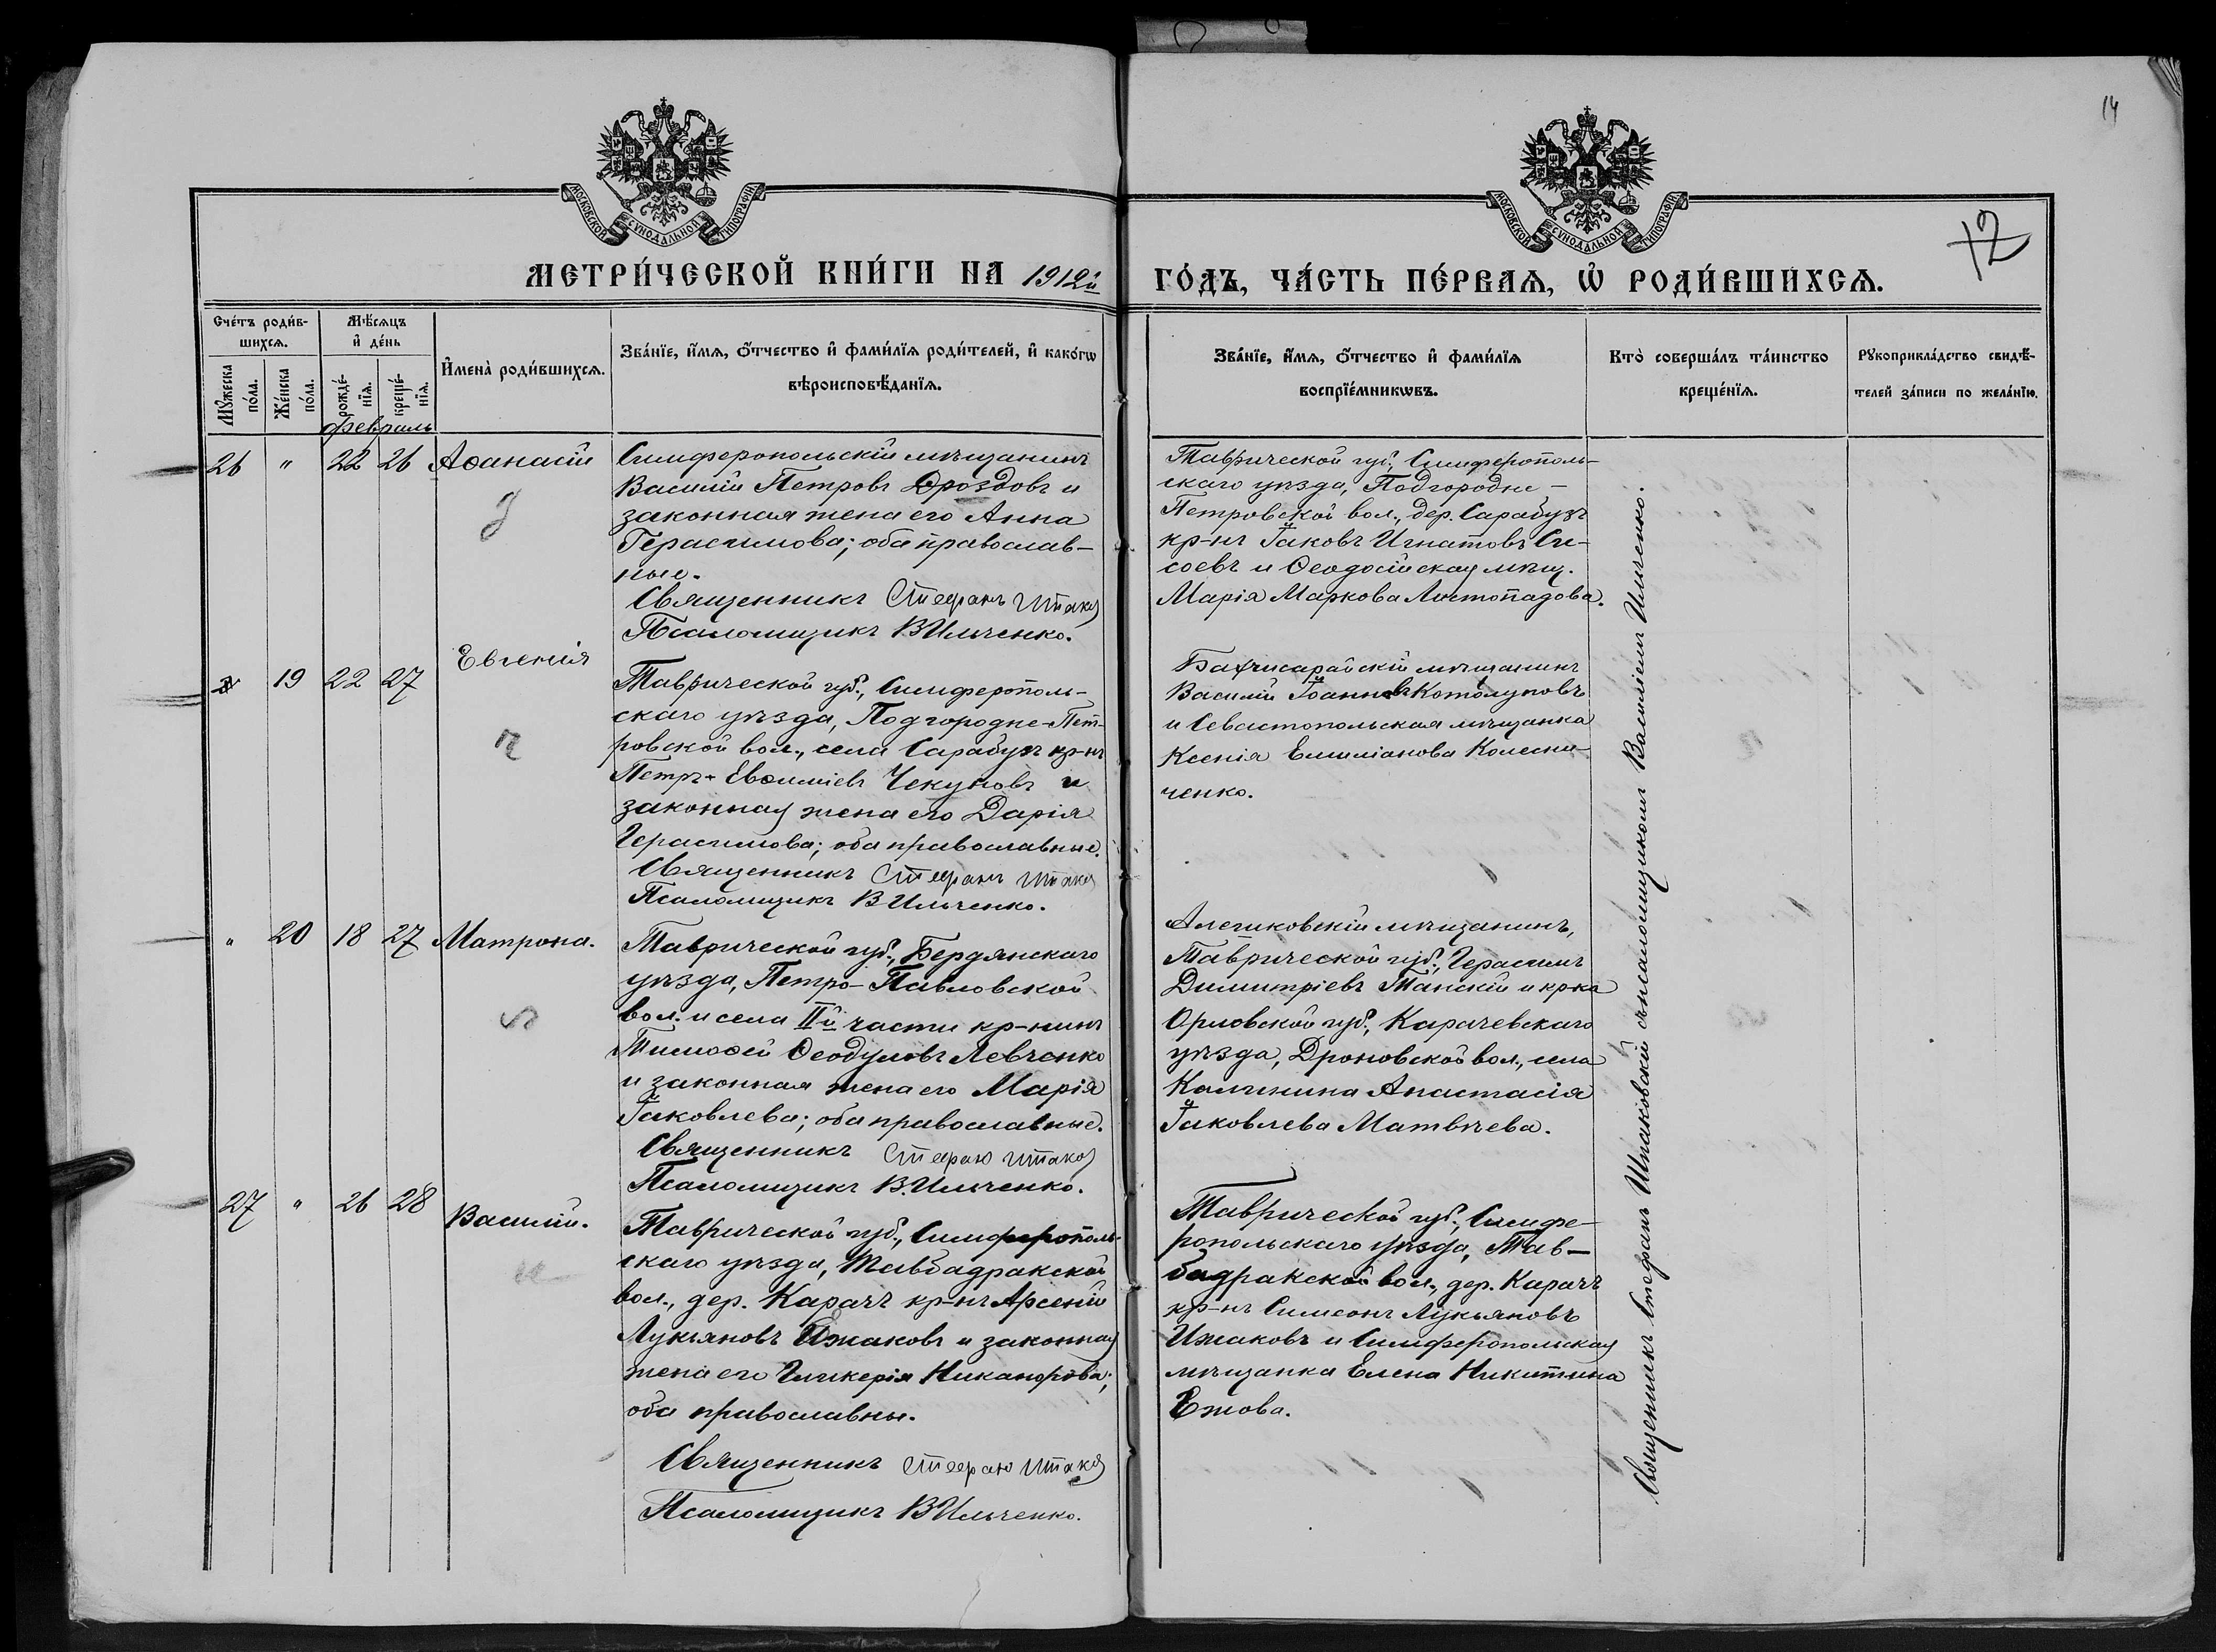 14
12
МОСКОВСКОЙ СѴНОДАЛЬНОЙ ТИПОГРАФІИ
МОСКОВСКОЙ СѴНОДАЛЬНОЙ ТИПОГРАФІИ
МЕТРИ́ЧЕСКОЙ КНИ́ГИ НА 1912й ГО́ДЪ, ЧА́СТЬ ПЕ́РВАѦ, Ѽ РОДИ́ВШИХСѦ.
Сче́тъ роди́в-
шихсѧ.
Мꙋ́жеска по́ла.
Же́нска по́ла.
Мѣ́сѧцъ
и҆ де́нь
рожде́-
нїѧ.
креще́-
нїѧ.
И҆мена̀ роди́вшихсѧ.
Зва́нїе, и҆́мѧ, ѻ҆́тчество и҆ фами́лїѧ роди́телей, и҆ како́гѡ
вѣроисповѣ́данїѧ.
Зва́нїе, и҆́мѧ, ѻ҆́тчество и҆ фами́лїѧ
воспрїе́мникѡвъ.
Кто̀ соверша́лъ та́инство
креще́нїѧ.
Рꙋкоприкла́дство свидѣ́-
телей за́писи по жела́нїю.
Февраль
26 " 22 26 Аѳанасій
Симферопольскій мѣщанинъ
Василій Петровъ Дроздовъ и
законная жена его Анна
Герасимова; оба православ-
ные.
Священникъ Стефанъ
Псаломщикъ В Ильченко.
Таврической губ., Симферополь-
скаго уѣзда, Подгородне-
Петровской вол., дер. Сарабузъ
кр-нъ Іаковъ Игнатовъ Си-
соевъ и Ѳеодосійская мѣщ.
Марія Маркова Листопадова.
19 22 27 Евгенія
Таврической губ., Симферополь-
скаго уѣзда, Подгородне-Пет-
ровской вол., села Сарабузъ кр-нъ
Петръ Евѳиміевъ Чекуновъ и
законная жена его Дарія
Герасимова; оба православные.
Священникъ Стефанъ
Псаломщикъ В Ильченко.
Бахчисарайскій мѣщанинъ
Василій Іоанновъ Котолуповъ
и Севастопольская мѣщанка
Ксенія Емиліанова Колесни-
ченко.
" 20 18 27 Матрона.
Таврической губ., Бердянскаго
уѣзда, Петро-Павловской
вол. и села IIй части кр-нинъ
Тимоѳей Ѳеодуловъ Левченко
и законная жена его Марія
Іаковлева; оба православные.
Священникъ Стефанъ
Псаломщикъ В. Ильченко.
Алешковскій мѣщанинъ,
Таврической губ., Герасимъ
Димитріевъ Танскій и кр-ка
Орловской губ., Карачевскаго
уѣзда, Дроновской вол., села
Калинина Анастасія
Іаковлева Матвѣева.
27 " 26 28 Василій.
Таврической губ., Симферополь-
скаго уѣзда, Тавбадракской
вол., дер. Карачъ кр-нъ Арсеній
Лукьяновъ Ижаковъ и законная
жена его Гликерія Никанорова;
оба православны.
Священникъ Стефанъ
Псаломщикъ В Ильченко.
Таврической губ., Симфе-
ропольскаго уѣзда, Тав-
бадракской вол., дер. Карачъ
кр-нъ Симеонъ Лукьяновъ
Ижаковъ и Симферопольская
мѣщанка Елена Никитина
Ежова.
Священникъ Стефанъ Штаковскій съ псаломщикомъ Василіемъ Ильченко.